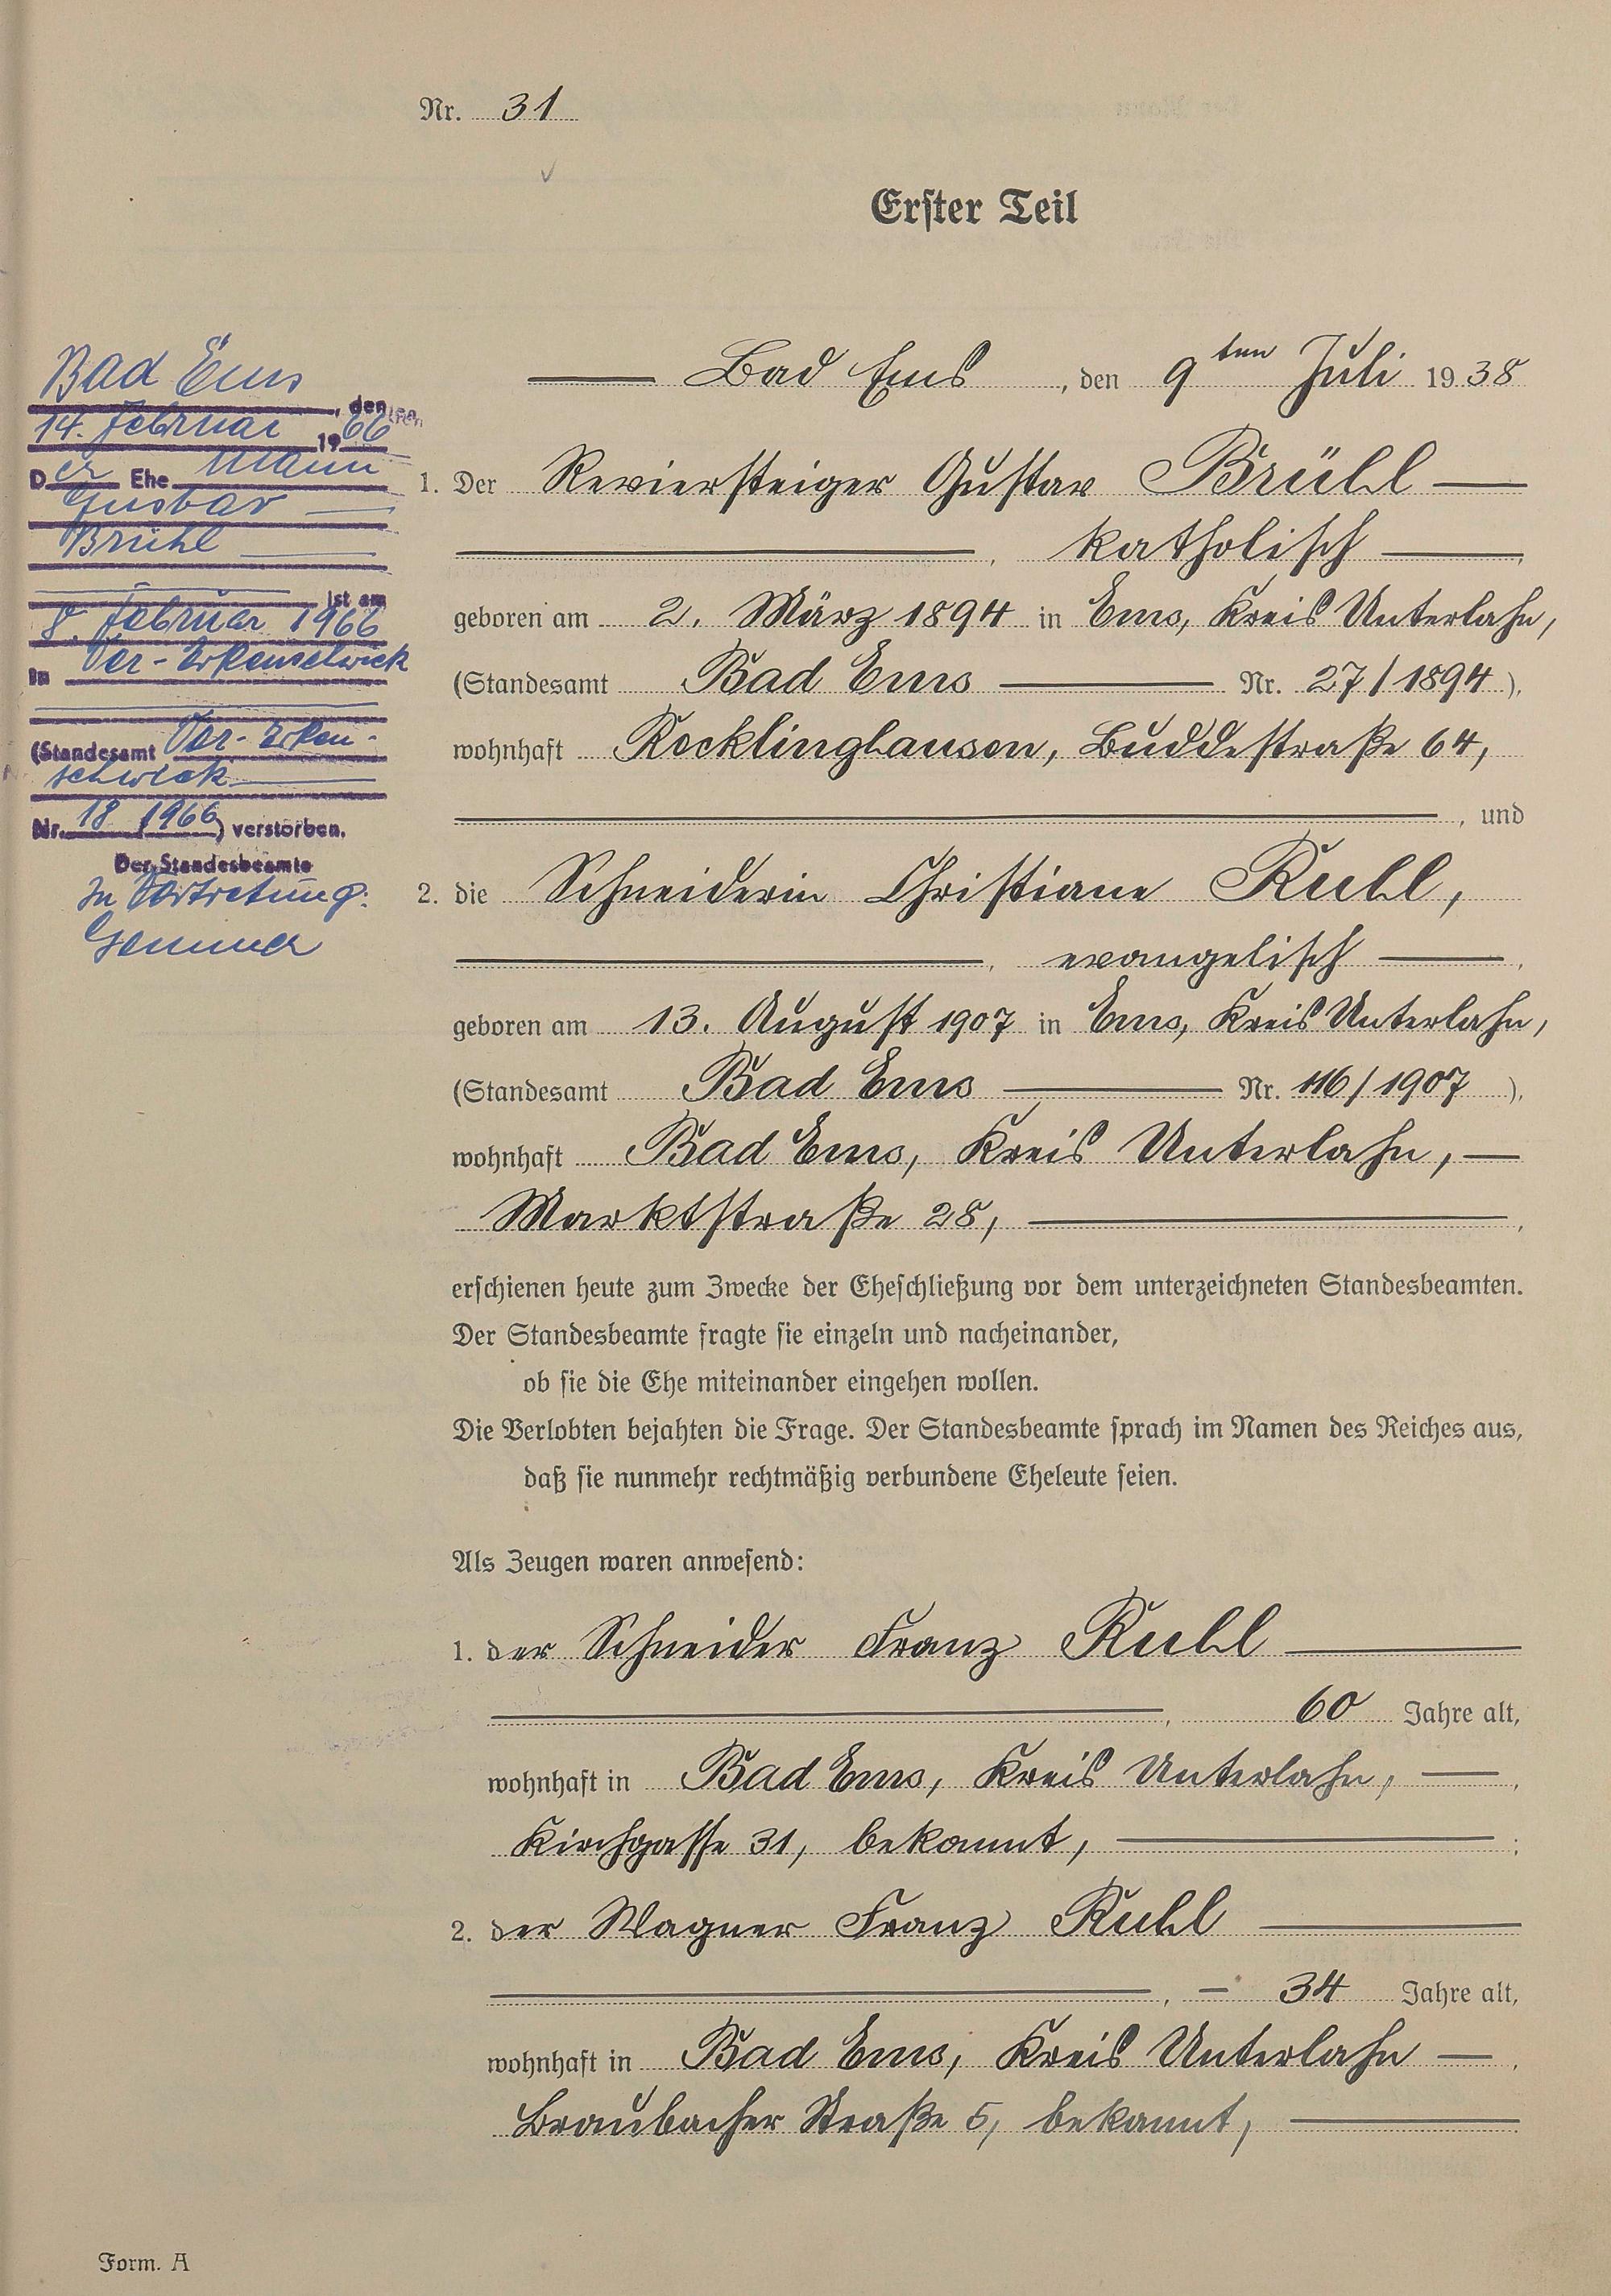 Nr. 31
Erster Teil
Bad Ems, den 9ten Juli 1938
1. Der Reviersteiger Gustav Brühl
, katholisch,
geboren am 2. März 1894 in Ems, Kreis Unterlahn,
(Standesamt Bad Ems Nr. 27/1894),
wohnhaft Recklinghausen, Buddestraße 64,
, und
2. die Schneiderin Christiane Ruhl,
, evangelisch,
geboren am 13. August 1907 in Ems, Kreis Unterlahn,
(Standesamt Bad Ems Nr. 116/1907),
wohnhaft Bad Ems, Kreis Unterlahn,
Marktstraße 28,
erschienen heute zum Zwecke der Eheschließung vor dem unterzeichneten Standesbeamten.
Der Standesbeamte fragte sie einzeln und nacheinander,
ob sie die Ehe miteinander eingehen wollen.
Die Verlobten bejahten die Frage. Der Standesbeamte sprach im Namen des Reiches aus,
daß sie nunmehr rechtmäßig verbundene Eheleute seien.
Als Zeugen waren anwesend:
1. der Schneider Franz Ruhl
, 60 Jahre alt,
wohnhaft in Bad Ems, Kreis Unterlahn,
Kirchgasse 31, bekannt, ;
2. der Wagner Franz Ruhl
, 34 Jahre alt,
wohnhaft in Bad Ems, Kreis Unterlahn,
Braubacher Straße 5, bekannt,
Form. A
Bad Ems
, den
14. Februar 1966
Der Ehe Mann
Gustav
Brühl
ist am
8. Februar 1966
in Oer-Erkenschwick
(Standesamt Oer-Erken-
schwick
Nr. 18/1966) verstorben.
Der Standesbeamte
In Vertretung: